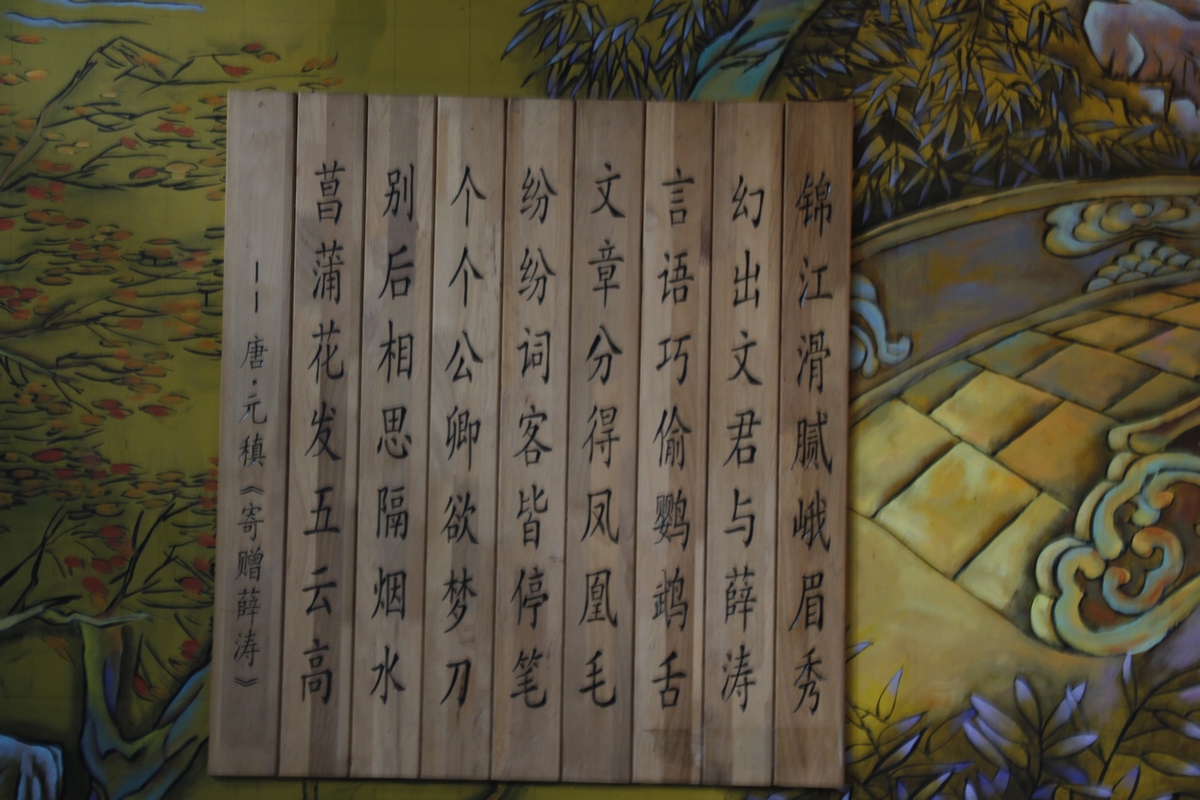 锦江滑腻峨眉秀
幻出文君与薛涛
言语巧偷鹦鹉舌
文章分得凤凰毛
纷纷词客皆停笔
个个公卿欲梦刀
别后相思隔烟水
菖蒲花发五云高
——唐·元稹《寄赠薛涛》